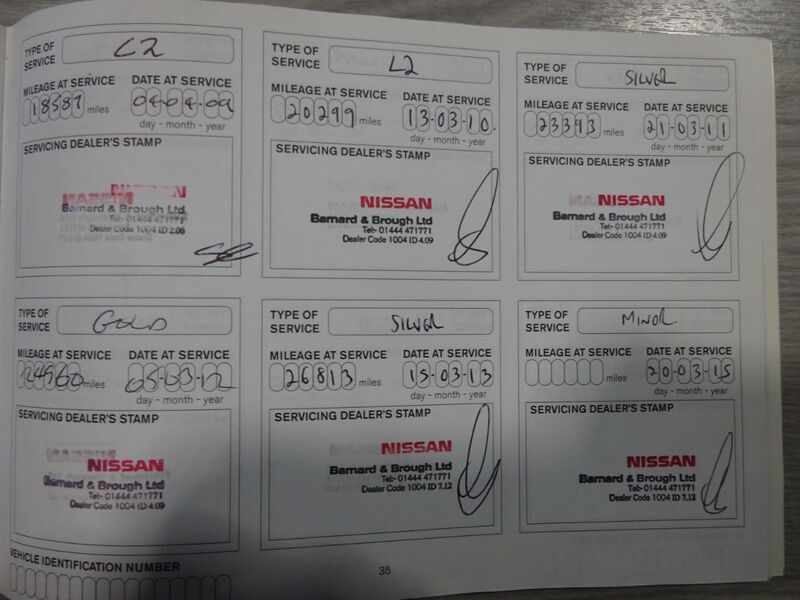 TYPE OF SERVICE L2
MILEAGE AT SERVICE 18587 miles
DATE AT SERVICE 04-04-09
day - month - year
SERVICING DEALER'S STAMP
NISSAN
Barnard & Brough Ltd
Tel:- 01444 471771
Dealer Code 1004 ID 2.06
TYPE OF SERVICE L2
MILEAGE AT SERVICE 20299 miles
DATE AT SERVICE 13-03-10
day - month - year
SERVICING DEALER'S STAMP
NISSAN
Barnard & Brough Ltd
Tel:- 01444 471771
Dealer Code 1004 ID 4.09
TYPE OF SERVICE SILVER
MILEAGE AT SERVICE 23393 miles
DATE AT SERVICE 21-03-11
day - month - year
SERVICING DEALER'S STAMP
NISSAN
Barnard & Brough Ltd
Tel:- 01444 471771
Dealer Code 1004 ID 4.09
TYPE OF SERVICE GOLD
MILEAGE AT SERVICE 24960 miles
DATE AT SERVICE 05-03-12
day - month - year
SERVICING DEALER'S STAMP
NISSAN
Barnard & Brough Ltd
Tel:- 01444 471771
Dealer Code 1004 ID 4.09
TYPE OF SERVICE SILVER
MILEAGE AT SERVICE 26813 miles
DATE AT SERVICE 13-03-13
day - month - year
SERVICING DEALER'S STAMP
NISSAN
Barnard & Brough Ltd
Tel:- 01444 471771
Dealer Code 1004 ID 7.12
TYPE OF SERVICE MINOR
MILEAGE AT SERVICE miles
DATE AT SERVICE 20-03-15
day - month - year
SERVICING DEALER'S STAMP
NISSAN
Barnard & Brough Ltd
Tel:- 01444 471771
Dealer Code 1004 ID 7.12
VEHICLE IDENTIFICATION NUMBER
35